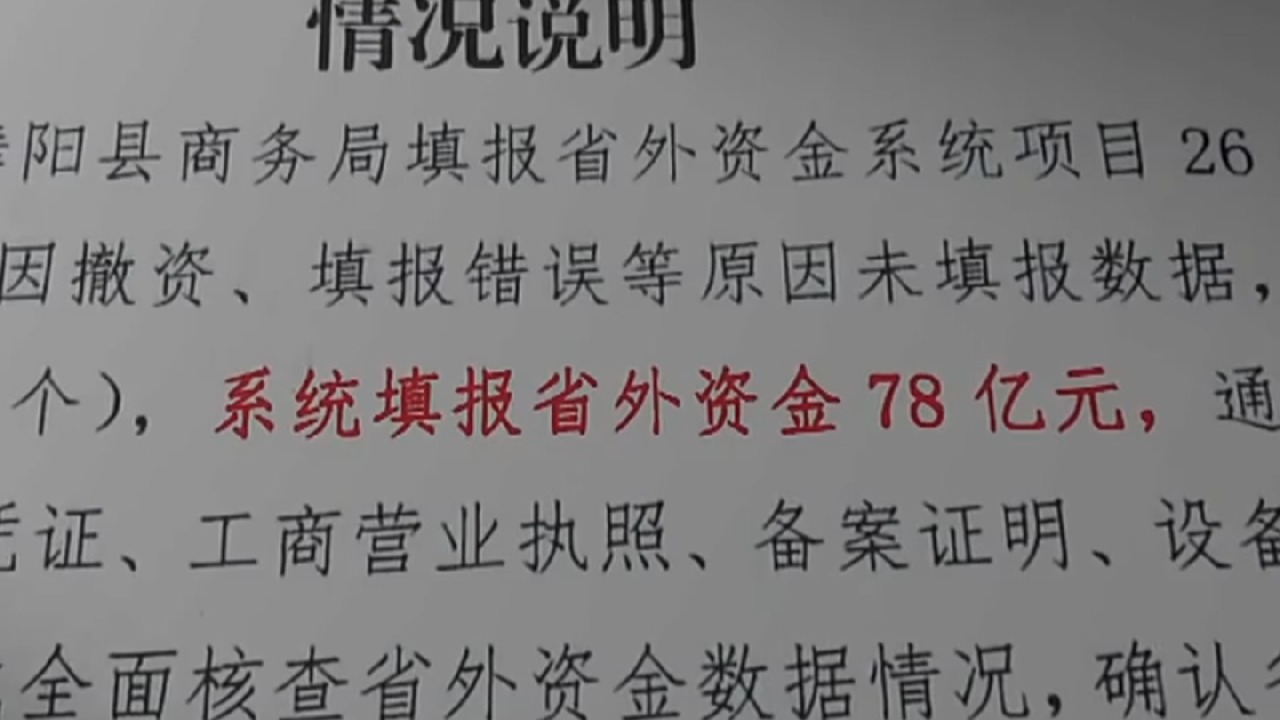 情况说明
阳县商务局填报省外资金系统项目 26
因撤资、填报错误等原因未填报数据，
个），系统填报省外资金 78 亿元，通
证、工商营业执照、备案证明、设备
全面核查省外资金数据情况，确认